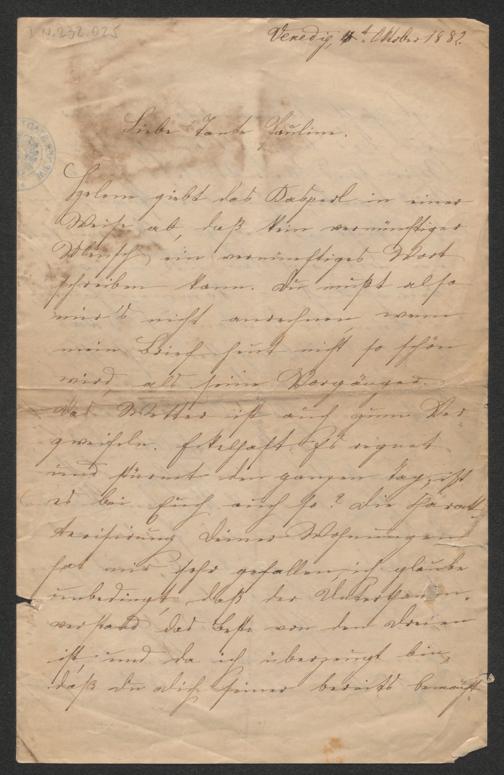 I N. 232.025
Venedig, 4t. Oktober 1882.
Liebe Tante Pauline.
Helene giebt das Kasperl in einer
Weise ab, daß kein vernünftiger
Mensch ein vernünftiges Wort
schreiben kann. Du mußt also
mir's nicht anrechnen, wenn
mein Brief heut nicht so schön
wird, als seine Vorgänger.
Das Wetter ist auch zum Ver
zweifeln. Ekelhaft. Es regnet
und stürmt den ganzen Tag, ist
es bei Euch auch so? Die Charak-
terisirung Deiner Wohnungen
hat mir sehr gefallen, ich glaube
unbedingt, daß der
verstand das beste von den Dreien
ist, und da ich überzeugt bin,
daß Du Dich seiner bereits bemächt